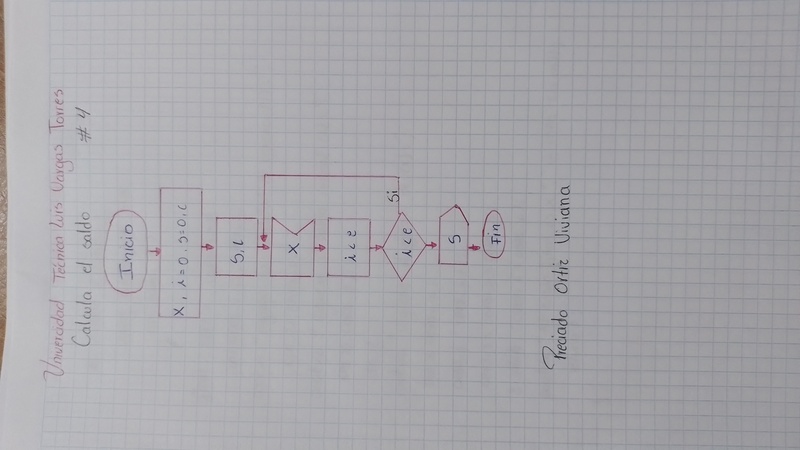 Univercidad Técnica Luis Vargas Torres
Calcula el saldo #4
Inicio
x, i=0, s=0, c
S, i
x
i < e
i < e
Si
S
Fin
Preciado Ortiz Viviana